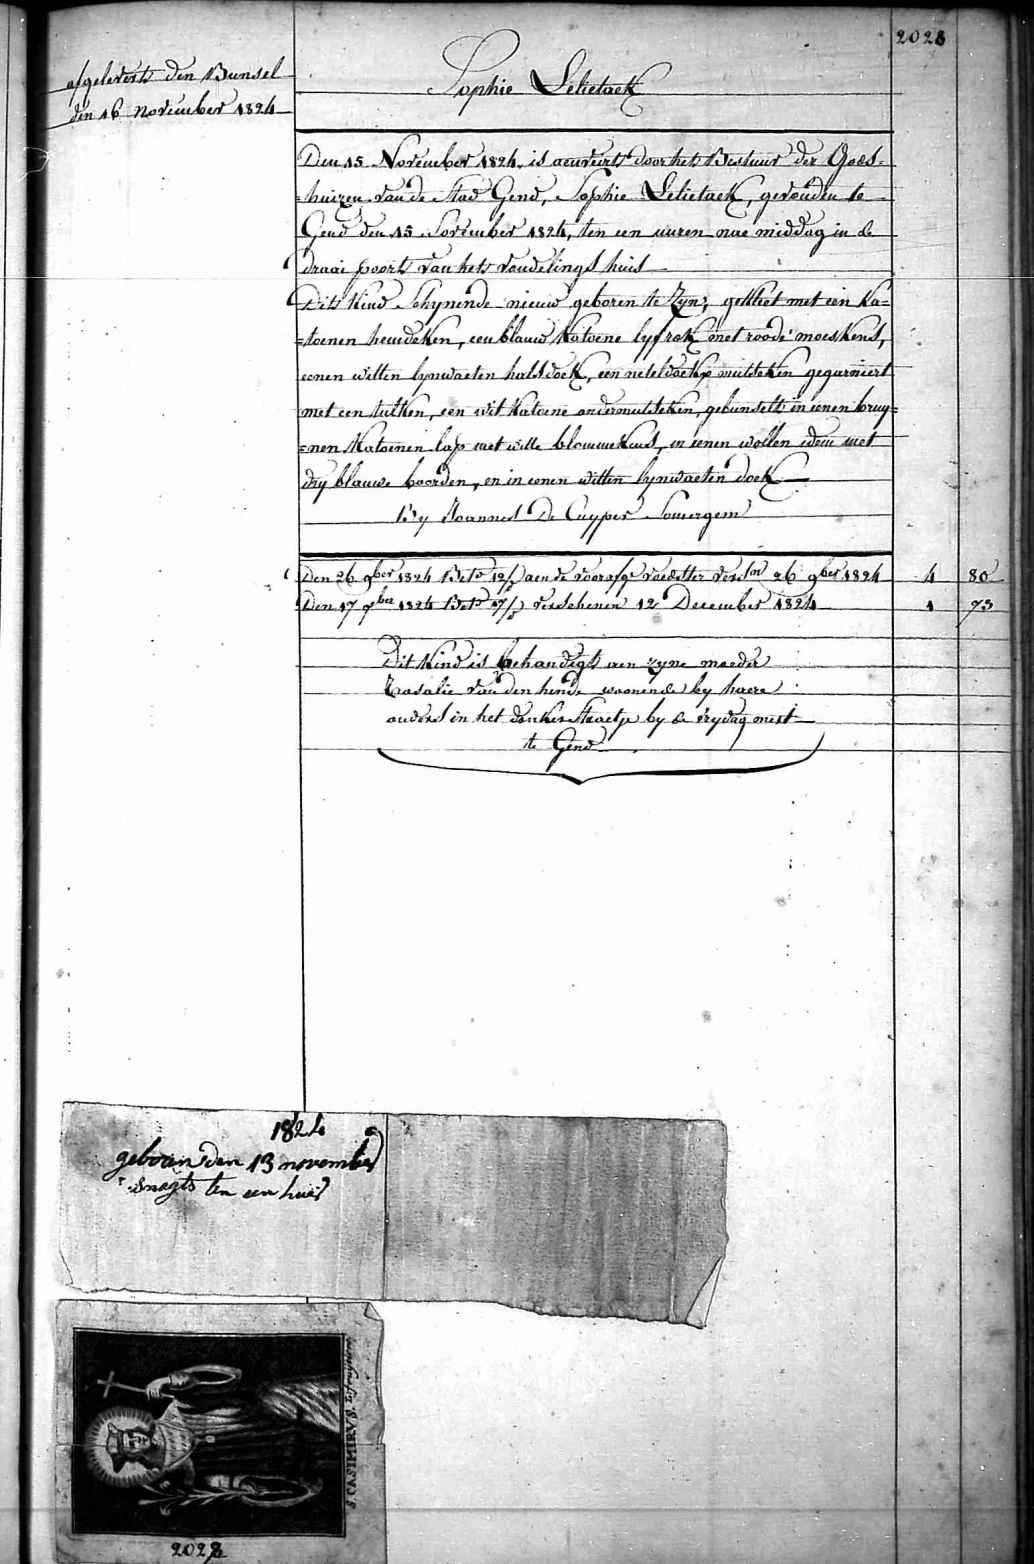 2028
afgelevert den Bunsel
den 16 november 1824
Sophie Lelietack
Den 15 November 1824 is aenveirt door het Bestuur der Gods-
=huizen van de Stad Gend, Sophie Lelietack, gevonden te
Gend den 15 November 1824, ten een uuren nae middag in de
draai poort van het vondelings huis
Dit Kind Schynende nieuw geboren te Zyn, gekleet met een Ka=
=toenen hemdeken, een blauw Katoene lyfrok met roode moeskens,
eenen witten lynwaeten halsdoek, een neteldoekx mutseken gegarniert
met een tulken, een wit Katoene ondermutseken, gebunselt in eenen bruy=
=nen Katoenen lap met witte blommekens, in eenen wollen idem met
dry blauwe boorden, en in eenen witten lynwaeten doek
by Joannes De Cuyper Somergem
Den 26 9ber 1824 Bet. 12/ aen de voorafge voedster versn 26 9ber 1824 4 80
Den 17 Xber 1824 Bet. 17/ verschenen 12 December 1824 1 73
Dit Kind is behandigt aen zyne moeder
Rosalie van den hende woonende by haere
ouders in het donker straetje by de vrydag mert
te Gend
1824
geboren den 13 november
snagts ten een huer
S. CASIMIRVS.
2028